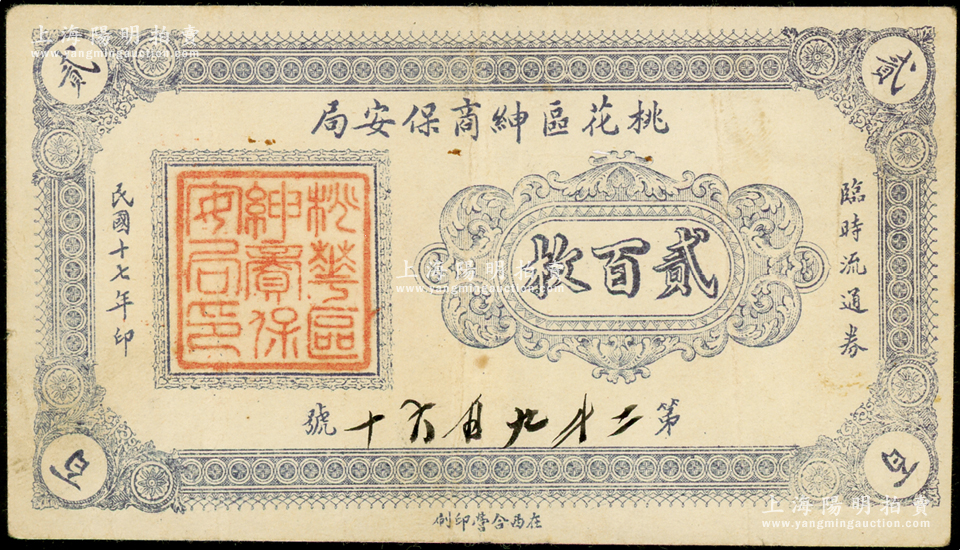 上海陽明拍賣
www.yangmingauction.com
上海陽明拍賣
www.yangmingauction.com
貳
貳
桃花區紳商保安局
臨時流通券
貳百枚
上海陽明拍賣
www.yangmingauction.com
桃華區
紳賚保
安局印
民國十七年印
第二
九百
十號
百
百
在西合營印刷
上海陽明拍賣
www.yangmingauction.com